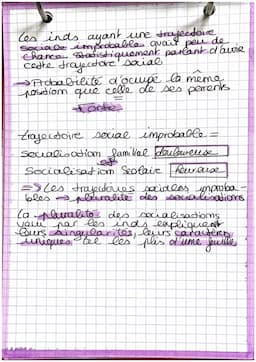 Les inds ayant une trajectoire
sociale improbable avait peu de
chance statistiquement parlant d'avoir
cette trajectoire social
→ Probabilité d'occupé la même
position que celle de ses parents
=
forte
trajectoire social improbable =
Socialisation familial douloureuse
et
Socialisation Scolaire heureuse
=> Les trajectoires sociales improba-
bles → pluralité des socialisations
La pluralité des socialisations
par les inds expliquent
leurs singularités, leurs caractères
uniques les plis d'une feuille